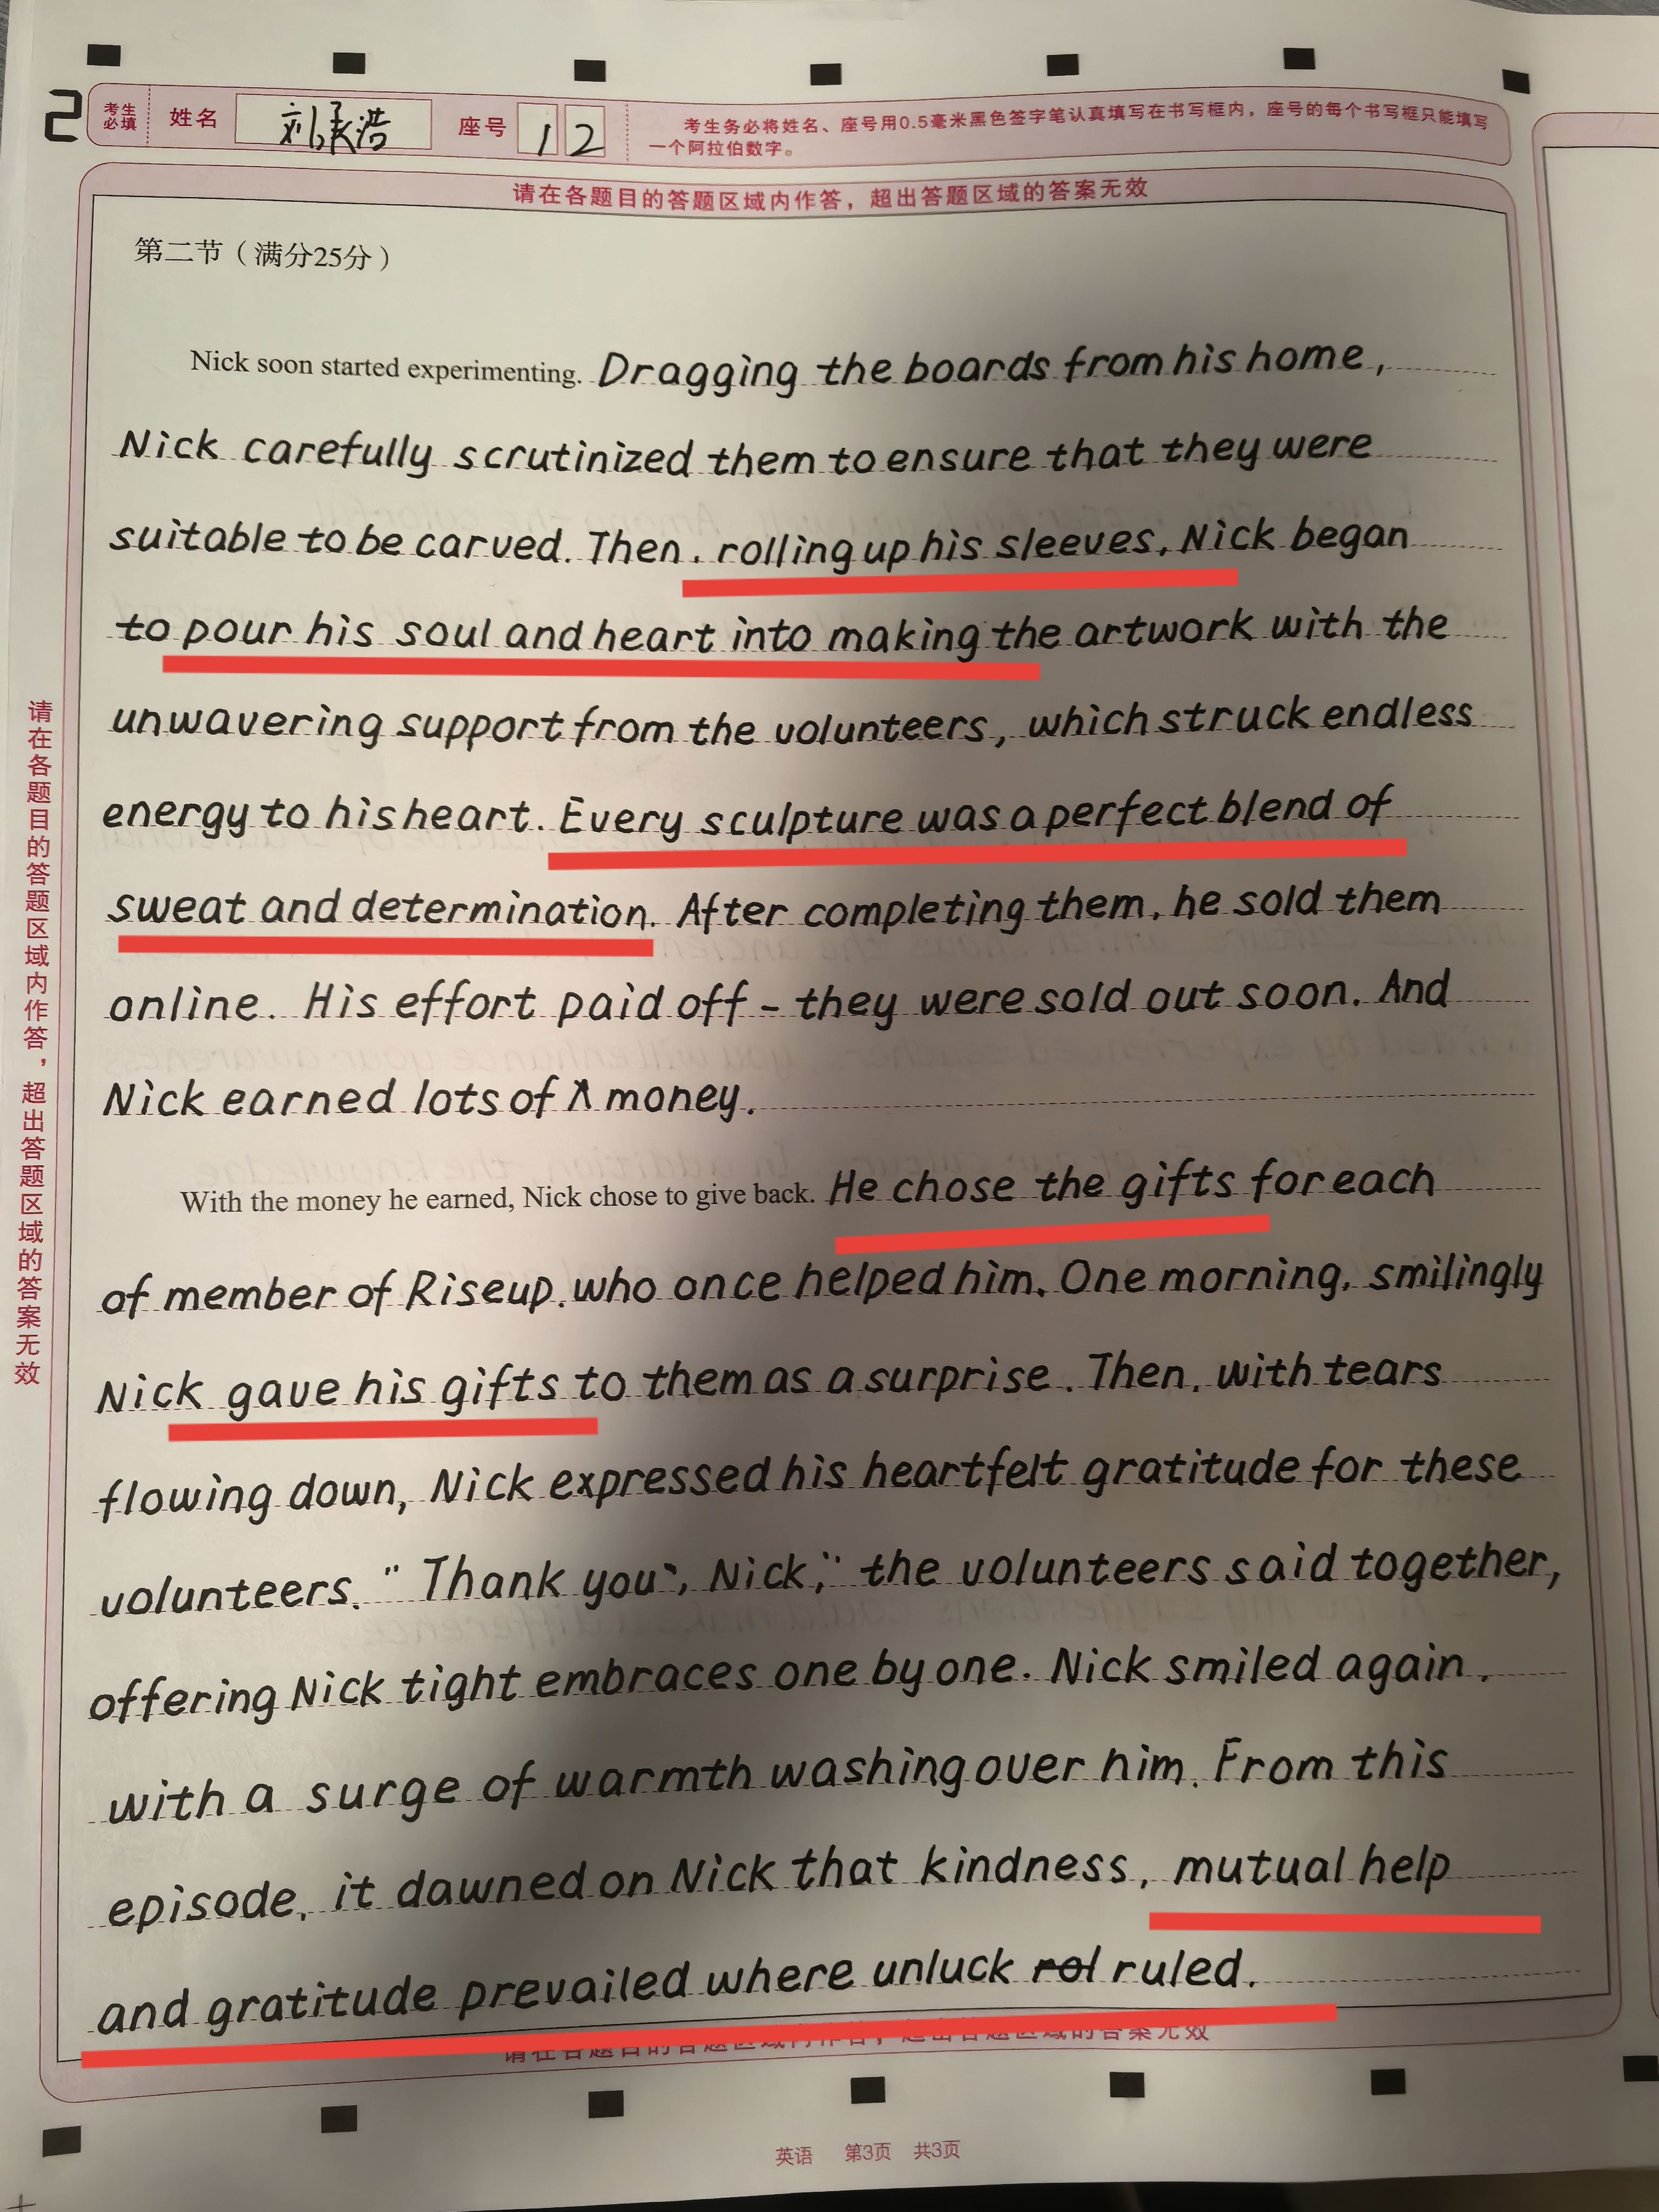 2
考生必填 姓名 刘承浩 座号 12 考生务必将姓名、座号用0.5毫米黑色签字笔认真填写在书写框内，座号的每个书写框只能填写
一个阿拉伯数字。
请在各题目的答题区域内作答，超出答题区域的答案无效
第二节（满分25分）
Nick soon started experimenting. Dragging the boards from his home,
Nick carefully scrutinized them to ensure that they were
suitable to be carved. Then, rolling up his sleeves, Nick began
to pour his soul and heart into making the artwork with the
unwavering support from the volunteers, which struck endless
energy to his heart. Every sculpture was a perfect blend of
sweat and determination. After completing them, he sold them
online. His effort paid off - they were sold out soon. And
Nick earned lots of money.
With the money he earned, Nick chose to give back. He chose the gifts for each
of member of Riseup, who once helped him. One morning, smilingly
Nick gave his gifts to them as a surprise. Then, with tears
flowing down, Nick expressed his heartfelt gratitude for these
volunteers. "Thank you", Nick," the volunteers said together,
offering Nick tight embraces one by one. Nick smiled again,
with a surge of warmth washing over him. From this
episode, it dawned on Nick that kindness, mutual help
and gratitude prevailed where unluck rol ruled.
请在各题目的答题区域内作答，超出答题区域的答案无效
英语 第3页 共3页
请在各题目的答题区域内作答，超出答题区域的答案无效